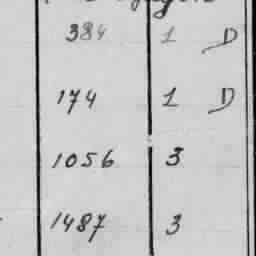 384 1 D
174 1 D
1056 3
1487 3